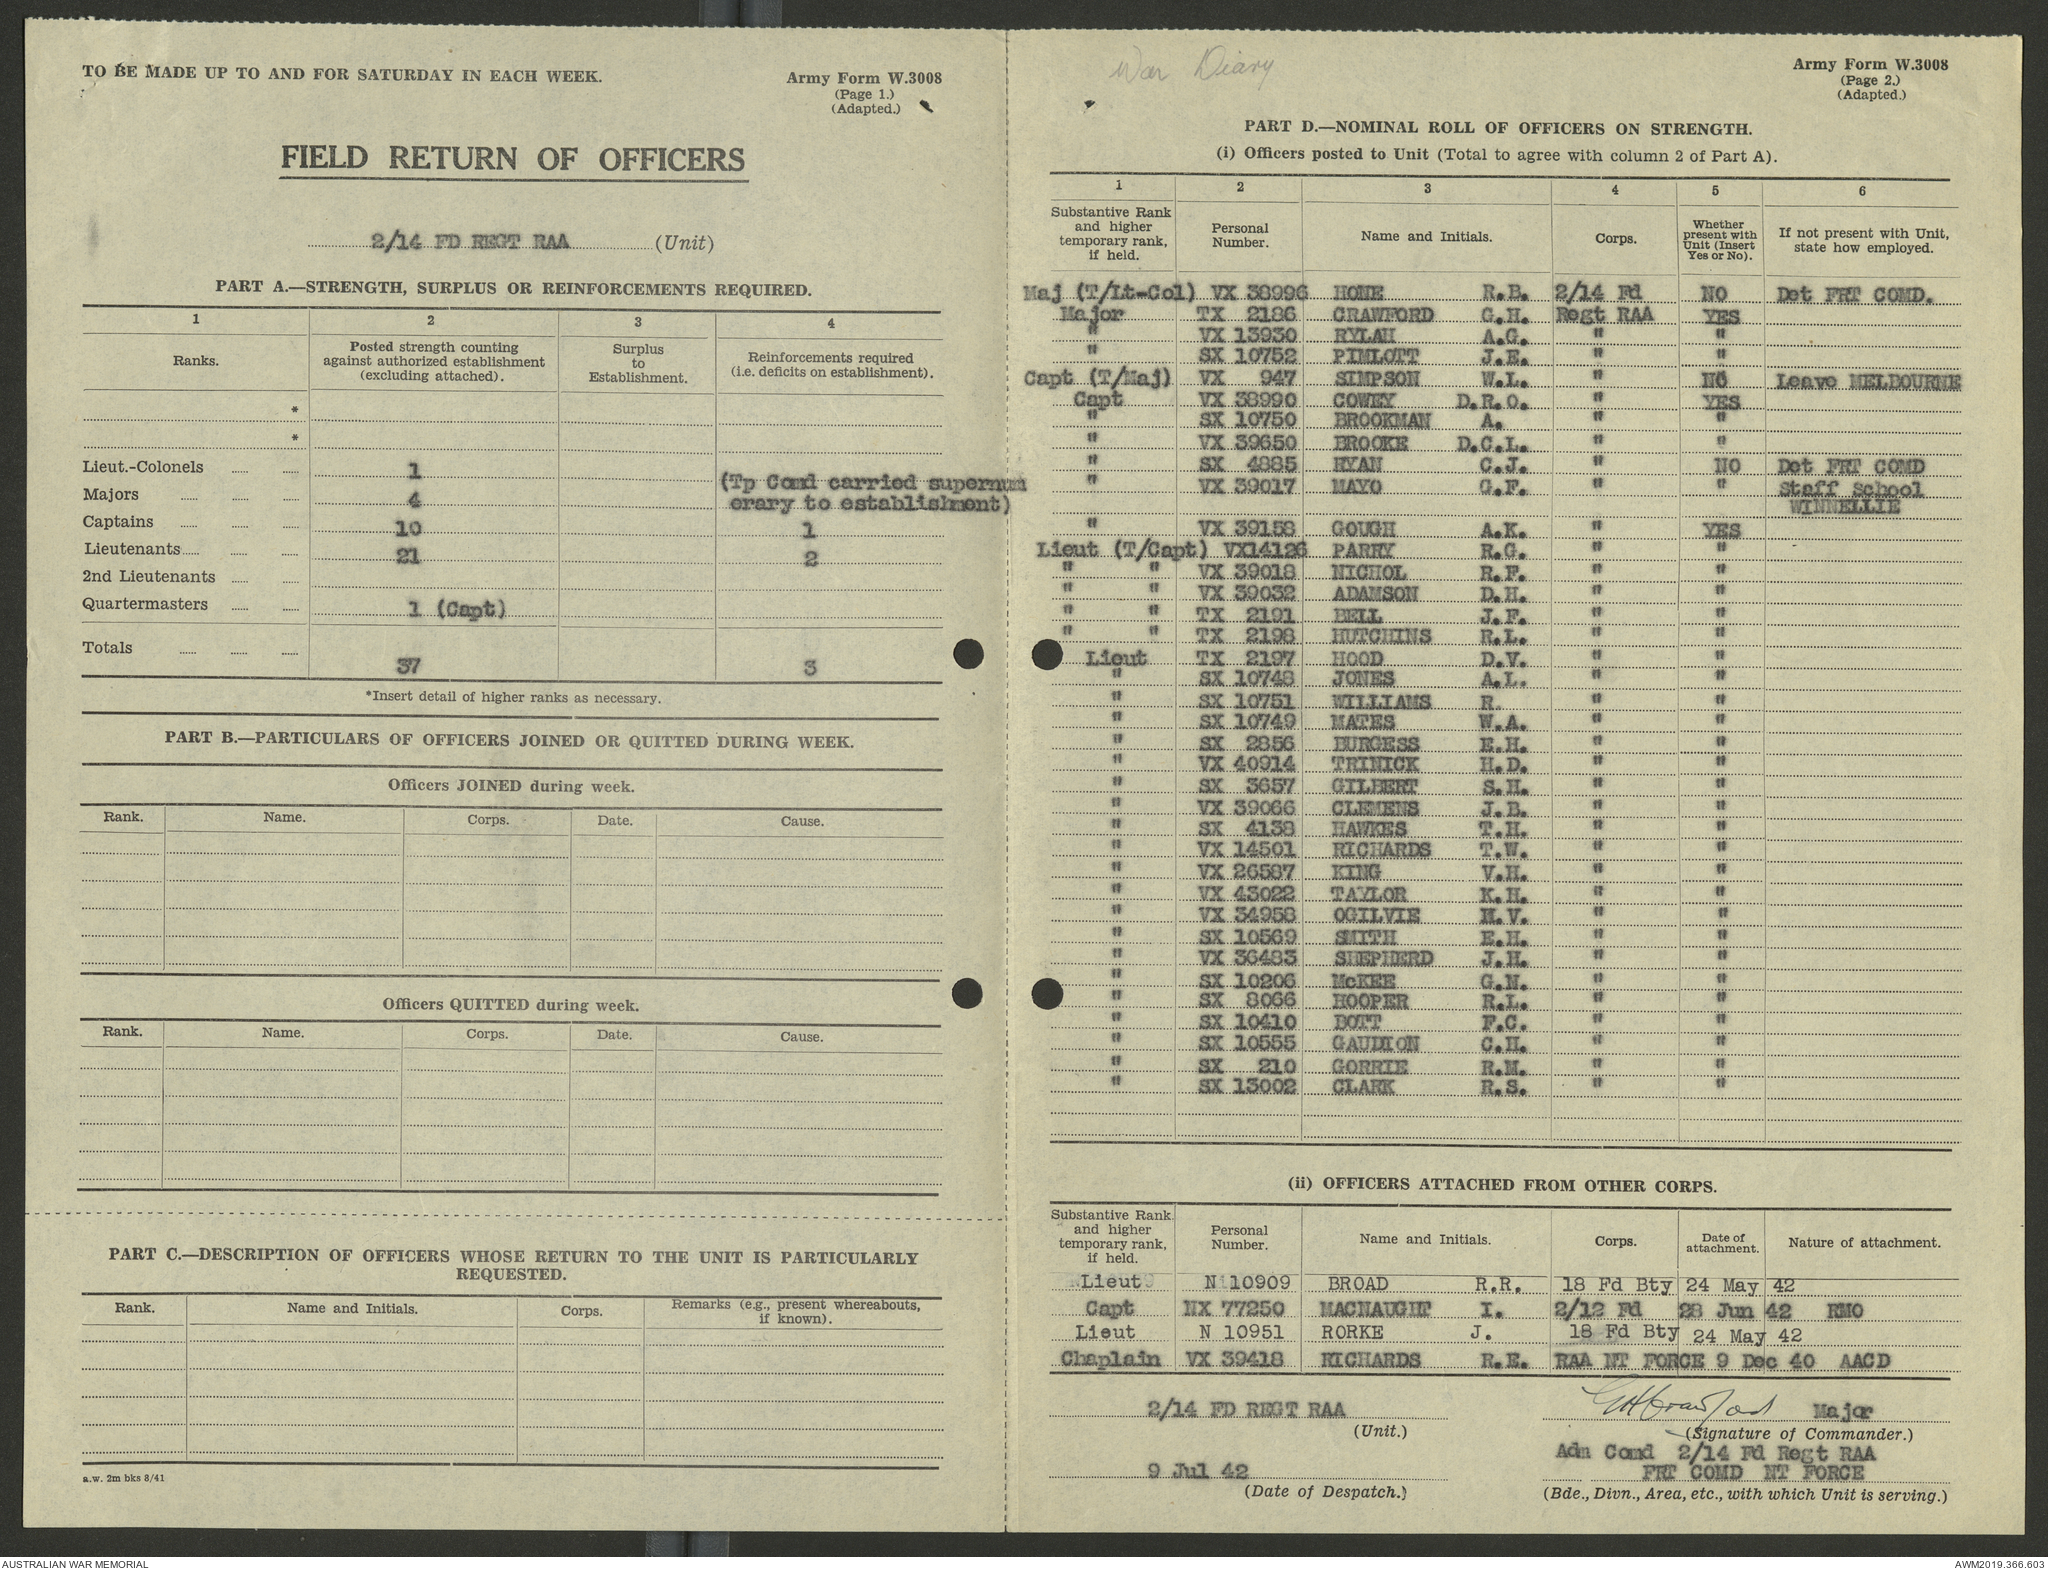 TO BE MADE UP TO AND FOR SATURDAY IN EACH WEEK.
Army Form W.3008
(Page 1.)
(Adapted.)
FIELD RETURN OF OFFICERS
2/14 FD REGT RAA (Unit)
PART A.—STRENGTH, SURPLUS OR REINFORCEMENTS REQUIRED.
1 2 3 4
Ranks. Posted strength counting against authorized establishment (excluding attached). Surplus to Establishment. Reinforcements required (i.e. deficits on establishment).
*
*
Lieut.-Colonels 1 (Tp Comd carried supernum
Majors 4 erary to establishment)
Captains 10 1
Lieutenants 21 2
2nd Lieutenants
Quartermasters 1 (Capt)
Totals 37 3
*Insert detail of higher ranks as necessary.
PART B.—PARTICULARS OF OFFICERS JOINED OR QUITTED DURING WEEK.
Officers JOINED during week.
Rank. Name. Corps. Date. Cause.
Officers QUITTED during week.
Rank. Name. Corps. Date. Cause.
PART C.—DESCRIPTION OF OFFICERS WHOSE RETURN TO THE UNIT IS PARTICULARLY
REQUESTED.
Rank. Name and Initials. Corps. Remarks (e.g., present whereabouts, if known).
a.w. 2m bks 8/41
War Diary
Army Form W.3008
(Page 2.)
(Adapted.)
PART D.—NOMINAL ROLL OF OFFICERS ON STRENGTH.
(i) Officers posted to Unit (Total to agree with column 2 of Part A).
1 2 3 4 5 6
Substantive Rank and higher temporary rank, if held. Personal Number. Name and Initials. Corps. Whether present with Unit (Insert Yes or No). If not present with Unit, state how employed.
Maj (T/Lt-Col) VX 38996 HONE R.B. 2/14 Fd NO Det FRT COMD.
Major TX 2186 CRAWFORD G.H. Regt RAA YES
" VX 13930 RYLAH A.G. " "
" SX 10752 PIMLOTT J.E. " "
Capt (T/Maj) VX 947 SIMPSON W.L. " NO Leave MELBOURNE
Capt VX 38990 COWEY D.R.O. " YES
" SX 10750 BROOKMAN A. " "
" VX 39650 BROOKE D.C.L. " "
" SX 4885 RYAN C.J. " NO Det FRT COMD
" VX 39017 MAYO G.F. " " Staff School
WINNELLIE
" VX 39158 GOUGH A.K. " YES
Lieut (T/Capt) VX14126 PARRY R.G. " "
" " VX 39018 NICHOL R.F. " "
" " VX 39032 ADAMSON D.H. " "
" " TX 2191 BELL J.F. " "
" " TX 2198 HUTCHINS R.L. " "
Lieut TX 2197 HOOD D.V. " "
" SX 10748 JONES A.L. " "
" SX 10751 WILLIAMS R. " "
" SX 10749 MATES W.A. " "
" SX 2856 BURGESS E.H. " "
" VX 40914 TRINICK H.D. " "
" SX 3657 GILBERT S.H. " "
" VX 39066 CLEMENS J.B. " "
" SX 4138 HAWKES T.H. " "
" VX 14501 RICHARDS T.W. " "
" VX 26587 KING V.H. " "
" VX 43022 TAYLOR K.H. " "
" VX 34958 OGILVIE H.V. " "
" SX 10569 SMITH E.H. " "
" VX 36483 SHEPHERD J.H. " "
" SX 10206 McKEE G.N. " "
" SX 8066 HOOPER R.L. " "
" SX 10410 DOTT F.C. " "
" SX 10555 GAUDION C.H. " "
" SX 210 GORRIE R.M. " "
" SX 13002 CLARK R.S. " "
(ii) OFFICERS ATTACHED FROM OTHER CORPS.
Substantive Rank and higher temporary rank, if held. Personal Number. Name and Initials. Corps. Date of attachment. Nature of attachment.
Lieut N 10909 BROAD R.R. 18 Fd Bty 24 May 42
Capt NX 77250 MACNAUGHT I. 2/12 Fd 28 Jun 42 RMO
Lieut N 10951 RORKE J. 18 Fd Bty 24 May 42
Chaplain VX 39418 RICHARDS R.E. RAA NT FORCE 9 Dec 40 AACD
2/14 FD REGT RAA
(Unit.)
9 Jul 42
(Date of Despatch.)
GHCrawford Major
(Signature of Commander.)
Adm Comd 2/14 Fd Regt RAA
FRT COMD NT FORCE
(Bde., Divn., Area, etc., with which Unit is serving.)
AUSTRALIAN WAR MEMORIAL
AWM2019.366.603